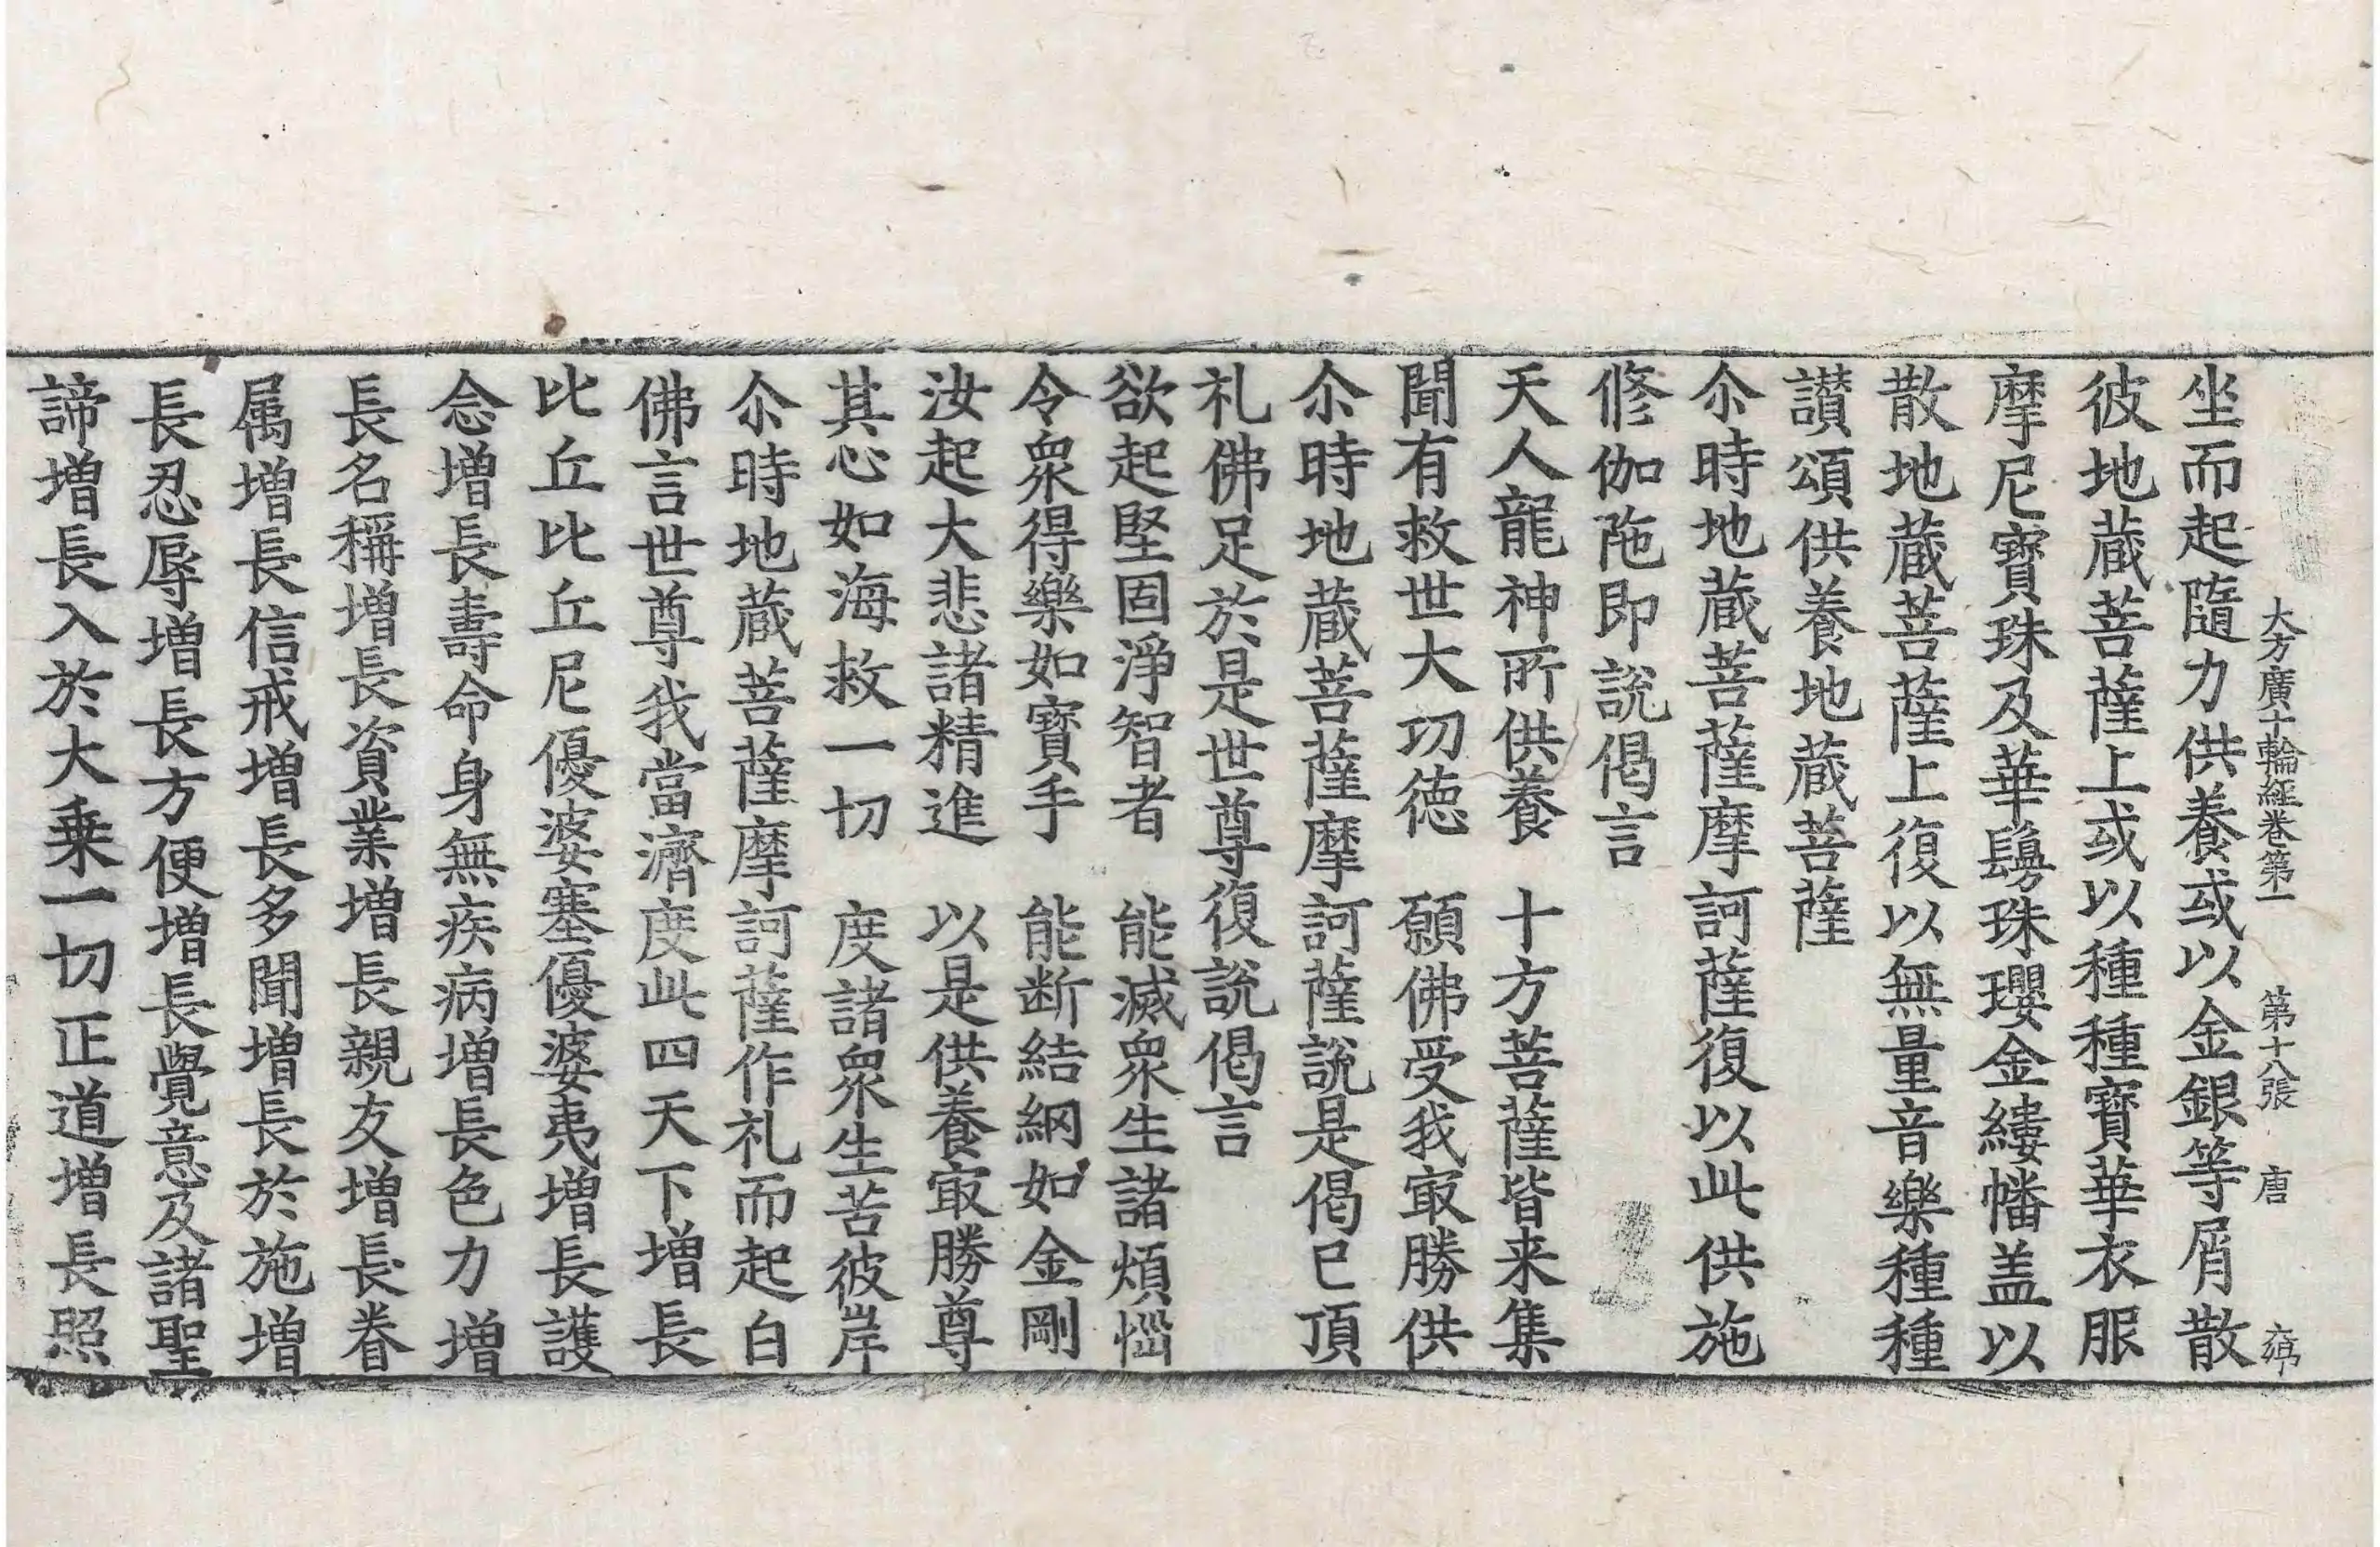 大方廣十輪經卷第一 第十八張 唐
坐而起隨力供養或以金銀等屑散
彼地蔵菩薩上或以種種寶華衣服
摩尼寶珠及華鬘珠瓔金縷幡盖以
散地蔵菩薩上復以無量音樂種種
讃頌供養地蔵菩薩
尒時地蔵菩薩摩訶薩復以此供施
修伽陁即說偈言
天人龍神所供養 十方菩薩皆来集
聞有救世大功徳 願佛受我㝡勝供
尒時地蔵菩薩摩訶薩說是偈已頂
礼佛足於是世尊復說偈言
欲起堅固淨智者 能滅衆生諸煩惱
令衆得樂如寶手 能断結網如金剛
汝起大悲諸精進 以是供養㝡勝尊
其心如海救一切 度諸衆生苦彼岸
尒時地蔵菩薩摩訶薩作礼而起白
佛言世尊我當濟度此四天下增長
比丘比丘尼優婆塞優婆夷增長護
念增長壽命身無疾病增長色力增
長名稱增長資業增長親友增長眷
属增長信戒增長多聞增長於施增
長忍辱增長方便增長覺意及諸聖
諦增長入於大乗一切正道增長照